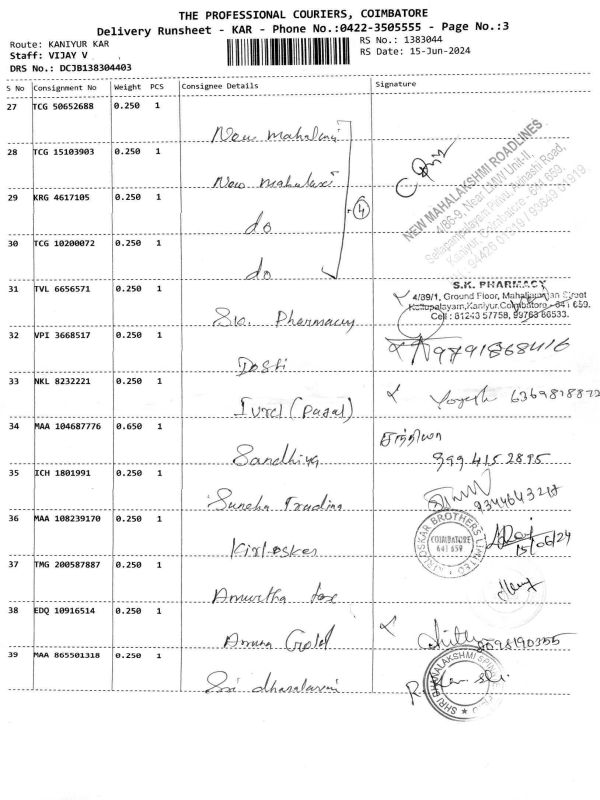 THE PROFESSIONAL COURIERS, COIMBATORE
Delivery Runsheet - KAR - Phone No.:0422-3505555 - Page No.:3
Route: KANIYUR KAR
RS No.: 1383044
Staff: VIJAY V
RS Date: 15-Jun-2024
DRS No.: DCJB138304403
S No Consignment No Weight PCS Consignee Details Signature
27 TCG 50652688 0.250 1
New mahalaxmi
28 TCG 15103903 0.250 1
New mahalaxmi
29 KRG 4617105 0.250 1
do
4
30 TCG 10200072 0.250 1
do
NEW MAHALAKSHMI ROADLINES
4/86-9, Near LMW Unit-II,
31 TVL 6656571 0.250 1
S.K. Pharmacy
S.K. PHARMACY
4/89/1, Ground Floor,
Cell : 81243 57758, 99763 86533.
32 VPI 3668517 0.250 1
9791868416
33 NKL 8232221 0.250 1
Yogesh
34 MAA 104687776 0.650 1
Sandhiya
சந்தியா
399 415 2895
35 ICH 1801991 0.250 1
Suneha Trading
9344643217
36 MAA 108239170 0.250 1
Kirloskar
KIRLOSKAR BROTHERS LIMITED
COIMBATORE
641 659
15/06/24
37 TMG 200587887 0.250 1
Amurtha
38 EDQ 10916514 0.250 1
Amma Gold
39 MAA 865501318 0.250 1
Sri dhanalaxmi
SHRI DHANALAKSHMI